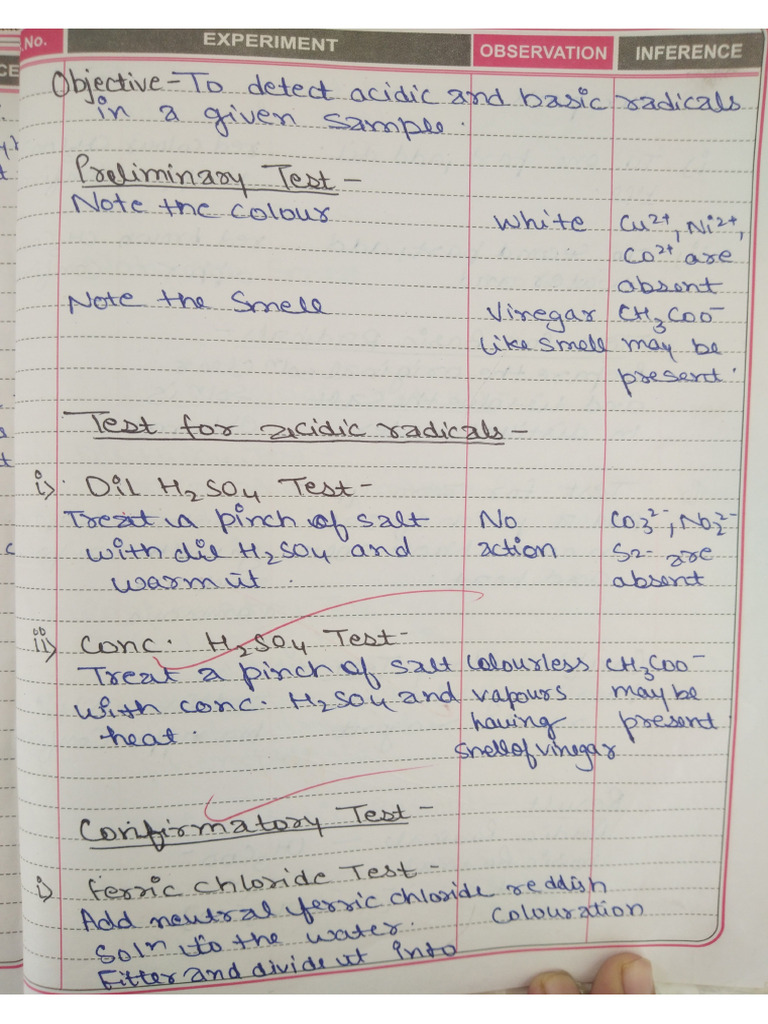 S.No. EXPERIMENT OBSERVATION INFERENCE
Objective - To detect acidic and basic radicals
in a given sample.
Preliminary Test -
Note the colour White Cu2+, Ni2+,
Co2+ are
absent
Note the Smell Vinegar CH3COO-
like smell may be
present.
Test for acidic radicals -
i) Dil H2SO4 Test -
Treat a pinch of salt No CO3 2-, NO2 2-
with dil H2SO4 and action S2- are
warm it. absent
ii) Conc. H2SO4 Test -
Treat a pinch of salt colourless CH3COO-
with conc. H2SO4 and vapours may be
heat. having present
smell of vinegar
Confirmatory Test -
i) ferric chloride Test -
Add neutral ferric chloride reddish
Soln to the water. colouration
Filter and divide it into